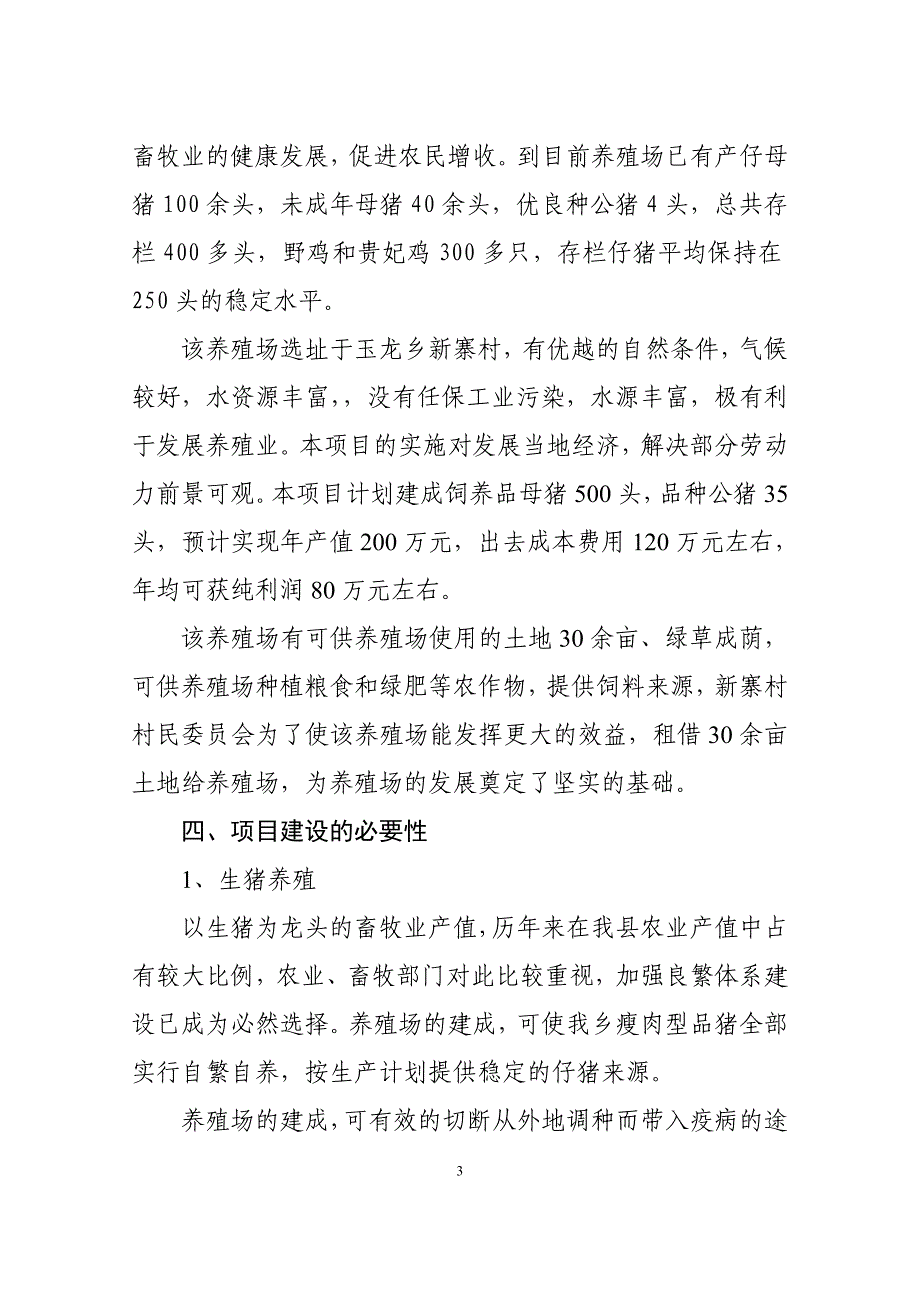 畜牧业的健康发展，促进农民增收。到目前养殖场已有产仔母
猪 100 余头，未成年母猪 40 余头，优良种公猪 4 头，总共存
栏 400 多头，野鸡和贵妃鸡 300 多只，存栏仔猪平均保持在
250 头的稳定水平。
该养殖场选址于玉龙乡新寨村，有优越的自然条件，气候
较好，水资源丰富，，没有任保工业污染，水源丰富，极有利
于发展养殖业。本项目的实施对发展当地经济，解决部分劳动
力前景可观。本项目计划建成饲养品母猪 500 头，品种公猪 35
头，预计实现年产值 200 万元，出去成本费用 120 万元左右，
年均可获纯利润 80 万元左右。
该养殖场有可供养殖场使用的土地 30 余亩、绿草成荫，
可供养殖场种植粮食和绿肥等农作物，提供饲料来源，新寨村
村民委员会为了使该养殖场能发挥更大的效益，租借 30 余亩
土地给养殖场，为养殖场的发展奠定了坚实的基础。
四、项目建设的必要性
1、生猪养殖
以生猪为龙头的畜牧业产值，历年来在我县农业产值中占
有较大比例，农业、畜牧部门对此比较重视，加强良繁体系建
设已成为必然选择。养殖场的建成，可使我乡瘦肉型品猪全部
实行自繁自养，按生产计划提供稳定的仔猪来源。
养殖场的建成，可有效的切断从外地调种而带入疫病的途
3